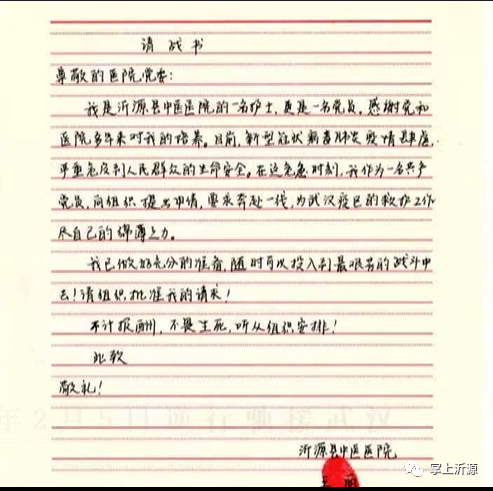 请战书
尊敬的医院党委：
我是沂源县中医医院的一名护士，更是一名党员。感谢党和
医院多年来对我的培养。目前，新型冠状病毒肺炎疫情肆虐，
严重危及到人民群众的生命安全。在这危急时刻，我作为一名共产
党员，向组织提出申请，要求奔赴一线，为武汉疫区的救护工作
尽自己的绵薄之力。
我已做好充分的准备，随时可以投入到最艰苦的战斗中
去！请组织批准我的请求！
不计报酬，不畏生死，听从组织安排！
此致
敬礼！
年2月5日逆行驰援武汉
沂源县中医医院
掌上沂源
王